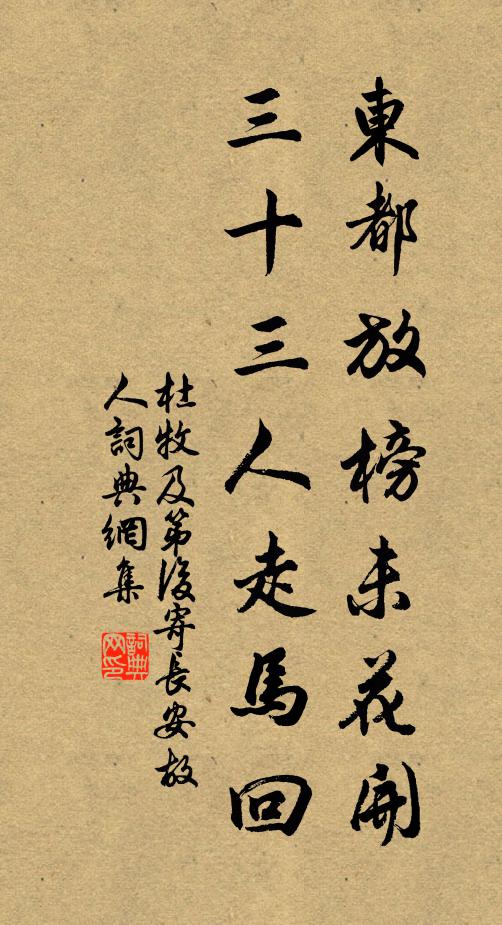 東都放榜未花開
三十三人走馬回
杜牧及第後寄長安故
人詞典網集
詞典
网印